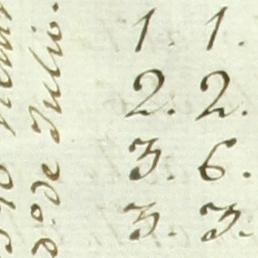 1. 1.
2. 2.
3. 6.
3. 3.
de Julio.